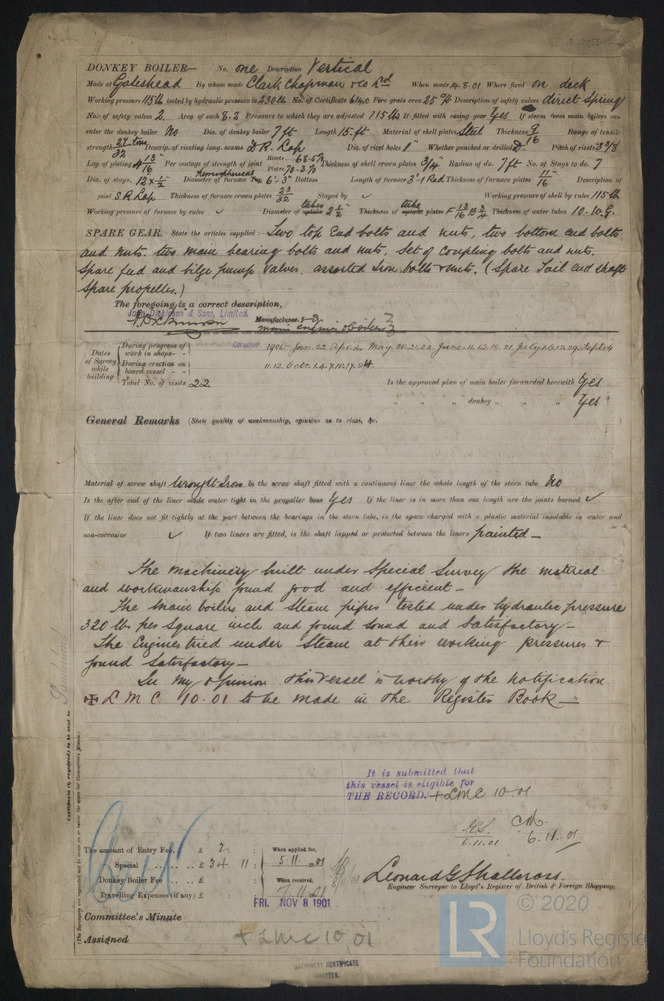 DONKEY BOILER— No. one Description Vertical
Made at Gateshead By whom made Clark Chapman & Co Ld When made 14.8.01 Where fixed on deck
Working pressure 115 lb tested by hydraulic pressure to 230 lb No. of Certificate 6140 Fire grate area 25 Description of safety valves direct Spring
No. of safety valves 2 Area of each 8.2 Pressure to which they are adjusted 115 lb If fitted with easing gear Yes If steam from main boilers can
enter the donkey boiler No Dia. of donkey boiler 7 ft Length 15 ft Material of shell plates Steel Thickness 9/16 Range of tensile
strength 27 ton/32 Descrip. of riveting long. seams D R. Lap Dia. of rivet holes 1" Whether punched or drilled D Pitch of rivets 3 7/8
Lap of plating 4 13/16 Per centage of strength of joint Rivets 68.6% Plates 70.3% Thickness of shell crown plates 3/4 Radius of do. 7 ft No. of Stays to do. 7
Dia. of stays. 12 x 1/2 Diameter of furnace Top 6'-3" Bottom Length of furnace 3'-1 Rad Thickness of furnace plates 11/16 Description of
joint S R Lap Thickness of furnace crown plates 23/32 Stayed by ✓ Working pressure of shell by rules 115 lb
Working pressure of furnace by rules ✓ Diameter of tubes 2 1/2 Thickness of tube plates F 13/16 B 3/4 Thickness of water tubes 10.10.G.
SPARE GEAR. State the articles supplied:— Two top end bolts and nuts, two bottom end bolts
and nuts. two main bearing bolts and nuts, set of coupling bolts and nuts.
Spare feed and bilge pump valves. assorted iron bolts & nuts. (Spare Tail end shaft
Spare propeller.)
The foregoing is a correct description,
John Dickinson & Sons, Limited.
Manufacturer.
main engines & boilers
Dates of Survey while building
During progress of work in shops—
1901- Jan. 22 Apl. May 20.21.22 June. 11.12.18.21. July 1.6.12.29. Sept. 4
During erection on board vessel—
11.12. Octr. 1.4.7.10.17.
Total No. of visits 22
Is the approved plan of main boiler forwarded herewith Yes
" " " donkey " " Yes
General Remarks (State quality of workmanship, opinions as to class, &c.
Material of screw shaft Wrought Iron Is the screw shaft fitted with a continuous liner the whole length of the stern tube No
Is the after end of the liner made water tight in the propeller boss Yes If the liner is in more than one length are the joints burned ✓
If the liner does not fit tightly at the part between the bearings in the stern tube, is the space charged with a plastic material insoluble in water and
non-corrosive ✓ If two liners are fitted, is the shaft lapped or protected between the liners painted—
The Machinery built under Special Survey the material
and workmanship found good and efficient—
The Main boilers and Steam pipes tested under hydraulic pressure
320 lb per Square inch and found sound and Satisfactory—
The Engines tried under Steam at their working pressures &
found Satisfactory—
In my opinion this vessel is worthy of the notification
✠ L M C 10-01 to be made in the Register Book—
It is submitted that
this vessel is eligible for
THE RECORD. + LMC 10 01
6.11.01
C.M.
6.11.01
The amount of Entry Fee. £ 2 : : When applied for,
Special £ 34 : 11 : 5.11.1901
Donkey Boiler Fee £ : : When received,
Travelling Expenses (if any) £ : : 7.11.01
Leonard G Shallcross.
Engineer Surveyor to Lloyd's Register of British & Foreign Shipping.
FRI. NOV 8 1901
Committee's Minute
Assigned + LMC 10 01
MACHINERY CERTIFICATE
WRITTEN.
Certificate (if required) to be sent to
(The Surveyors are requested not to write on or below the space for Committee's Minute.)
LR
© 2020
Lloyd's Register
Foundation